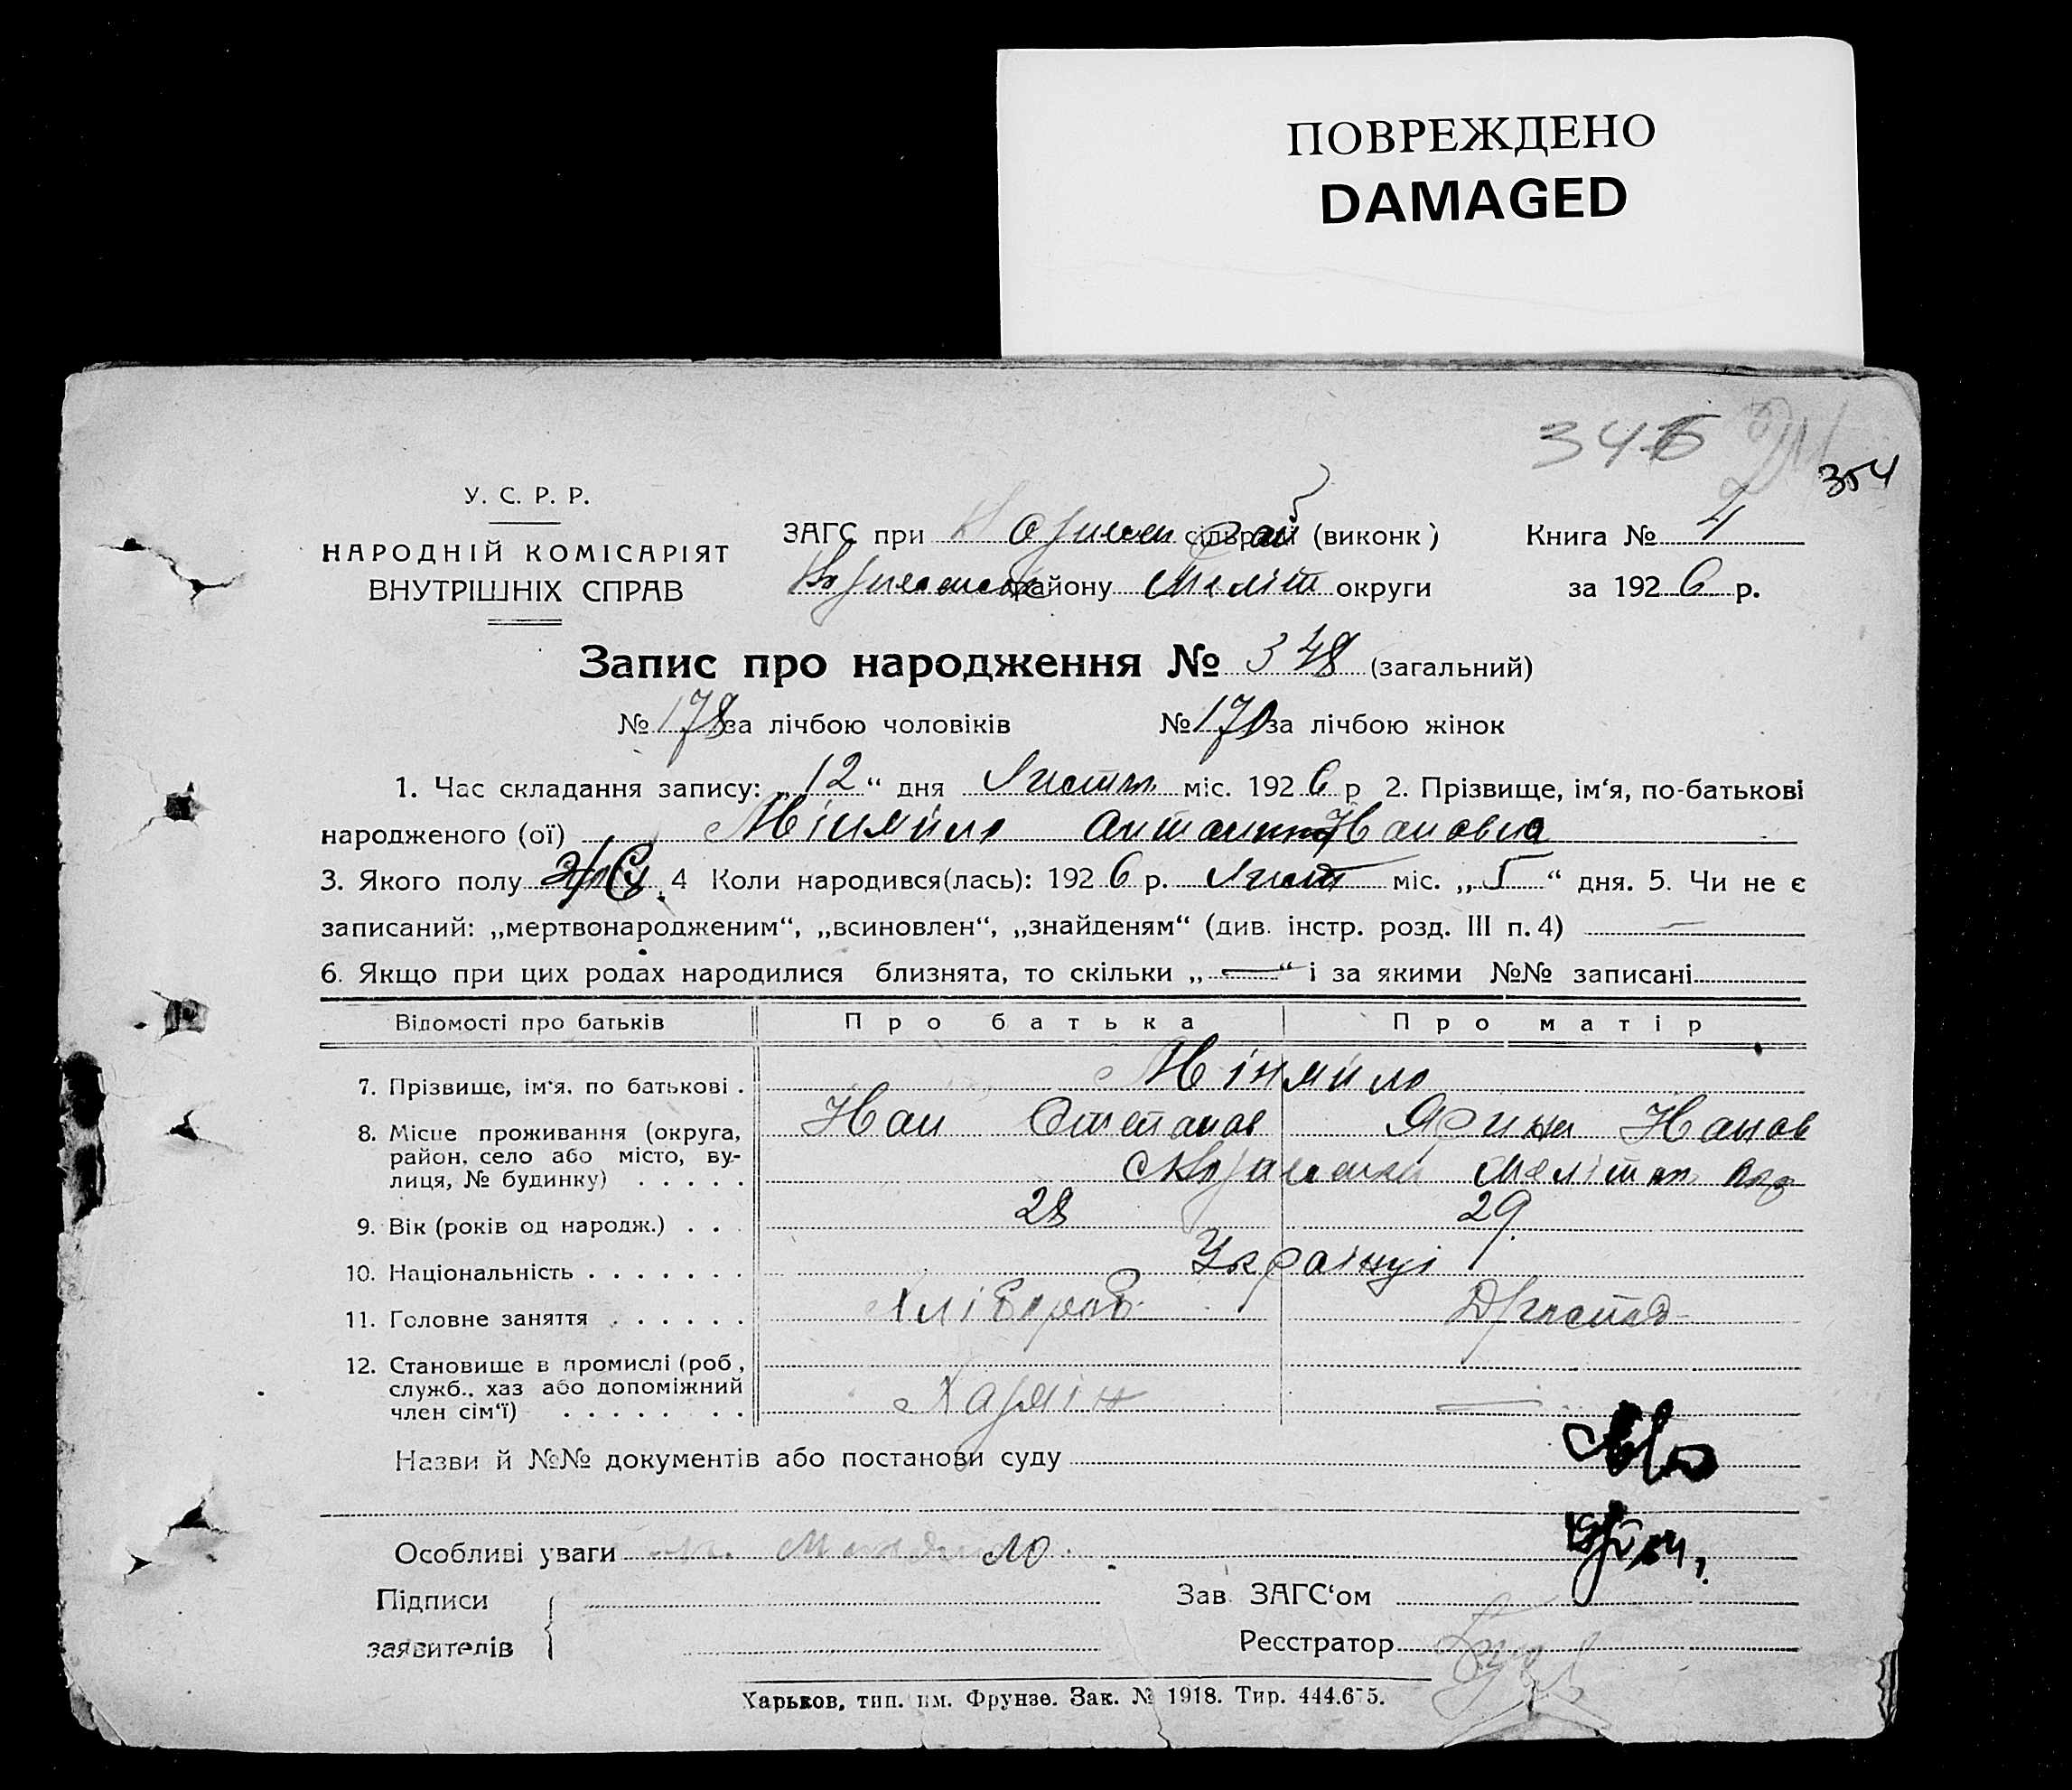 ПОВРЕЖДЕНО
DAMAGED
346
354
У. С. Р. Р.
НАРОДНІЙ КОМІСАРІЯТ
ВНУТРІШНІХ СПРАВ
ЗАГС при сільраії (виконк)
району Меліт округи
Книга № 4
за 1926 р.
Запис про народження № 348 (загальний)
№ 178 за лічбою чоловіків № 170 за лічбою жінок
1. Час складання запису: „12“ дня Листоп. міс. 1926 р 2. Прізвище, ім‘я, по-батькові
народженого (ої) Міняйло Антонина Івановна
3. Якого полу Ж 4 Коли народився(лась): 1926 р. Лист міс. „5“ дня. 5. Чи не є
записаний: „мертвонародженим“, „всиновлен“, „знайденям“ (див. інстр. розд. III п. 4) —
6. Якщо при цих родах народилися близнята, то скільки „—“ і за якими №№ записані
Відомості про батьків Про батька Про матір
7. Прізвище, ім‘я, по батькові . Міняйло
Іван Степанов Ярина Іванов
8. Місце проживання (округа,
район, село або місто, ву-
лиця, № будинку) . . . . . Меліт
9. Вік (років од народж.) . . . 28 29
10. Національність . . . . . . . Українці
11. Головне заняття . . . . . . Хлібороб Д/господ
12. Становище в промислі (роб,
служб., хаз або допоміжний
член сім‘ї) . . . . . . . Хазяїн —
Назви й №№ документів або постанови суду
Особливі уваги
Підписи
заявителів
Зав. ЗАГС‘ом
Реєстратор
Харьков, тип. им. Фрунзе. Зак. № 1918. Тир. 444.675.